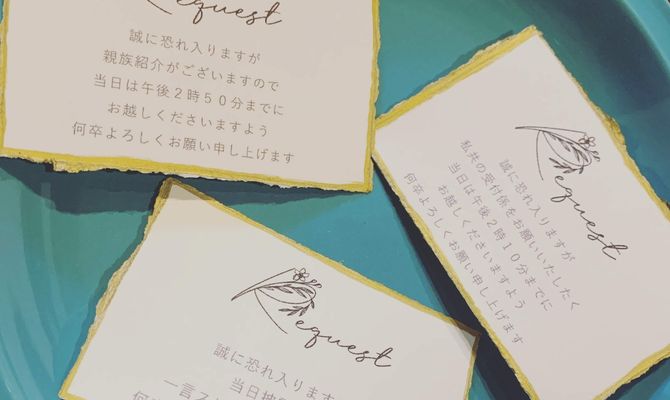 Request
誠に恐れ入りますが
親族紹介がございますので
当日は午後２時５０分までに
お越しくださいますよう
何卒よろしくお願い申し上げます
Request
誠に恐れ入りますが
私共の受付係をお願いいたしたく
当日は午後２時１０分までに
お越しくださいますよう
何卒よろしくお願い申し上げます
Request
誠に恐れ入ります
当日
一言
何